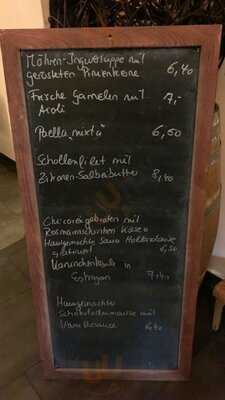 Möhren-Ingwersuppe mit
gerösteten Pinienkerne 6,40
Frische Garnelen mit 7,-
Aioli
Paella "mixta" 6,50
Schollenfilet mit
Zitronen-Salbeibutter 8,40
Chicorée gebraten mit
Rosmarinschinken Käse u
Hausgemachte Sauce Hollandaise
gratiniert 6,50
Kaninchenkeule in
Estragon 7,40
Hausgemachte
Schokoladenmousse mit
Vanillesauce 6,40